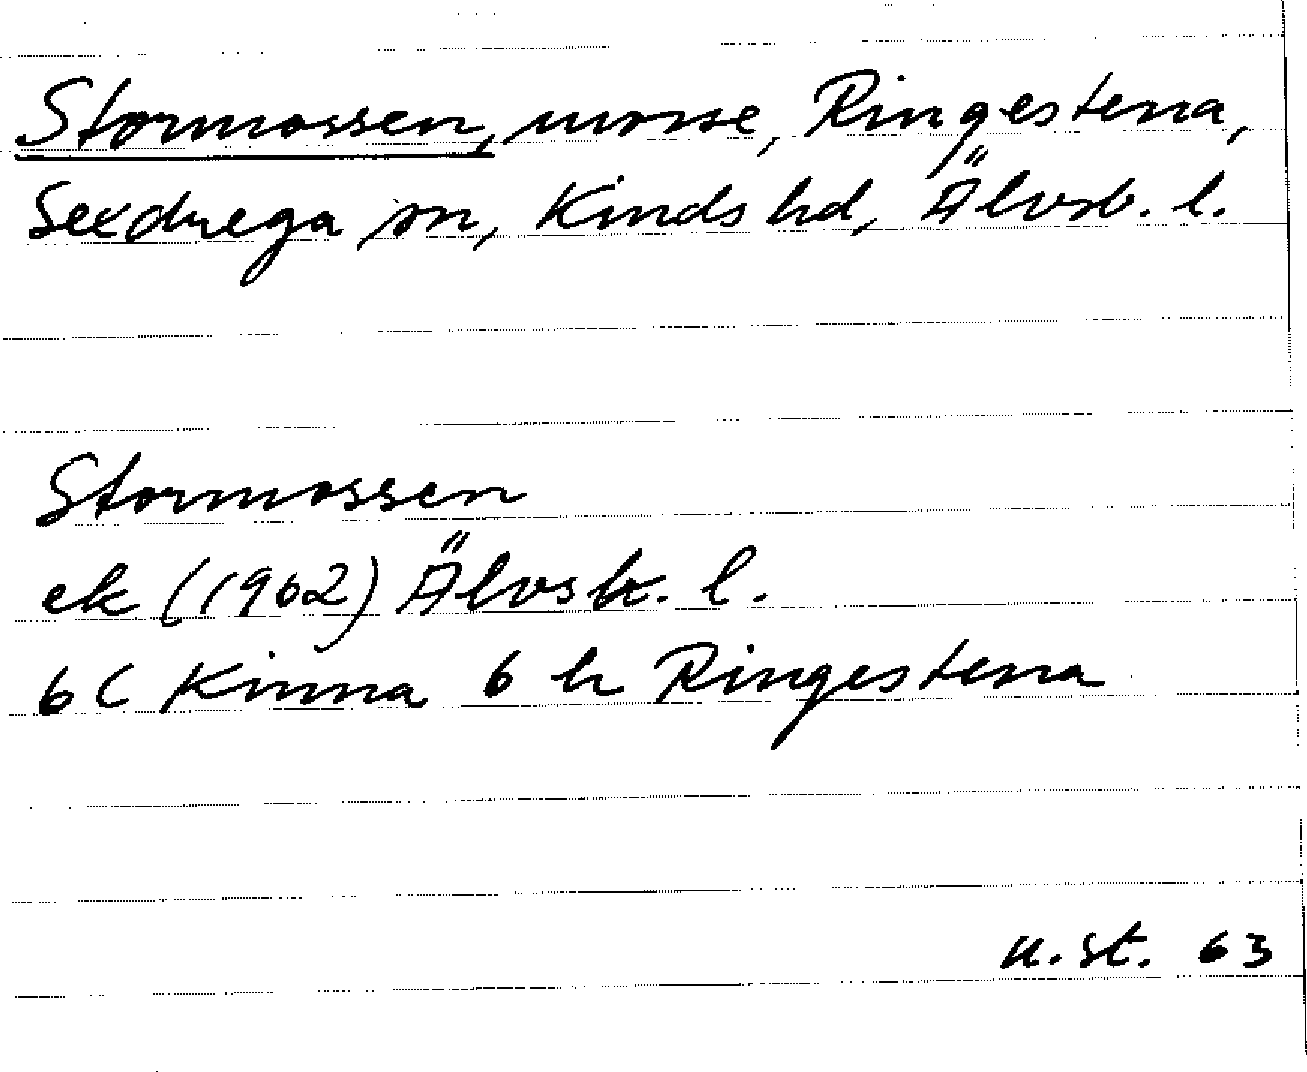 Stormossen, mosse, Ringestena,
Sexdrega sn, Kinds hd, Älvsb. l.
Stormossen
ek (1962) Älvsb. l.
6C Kinna 6 h Ringestena
u. st. 63